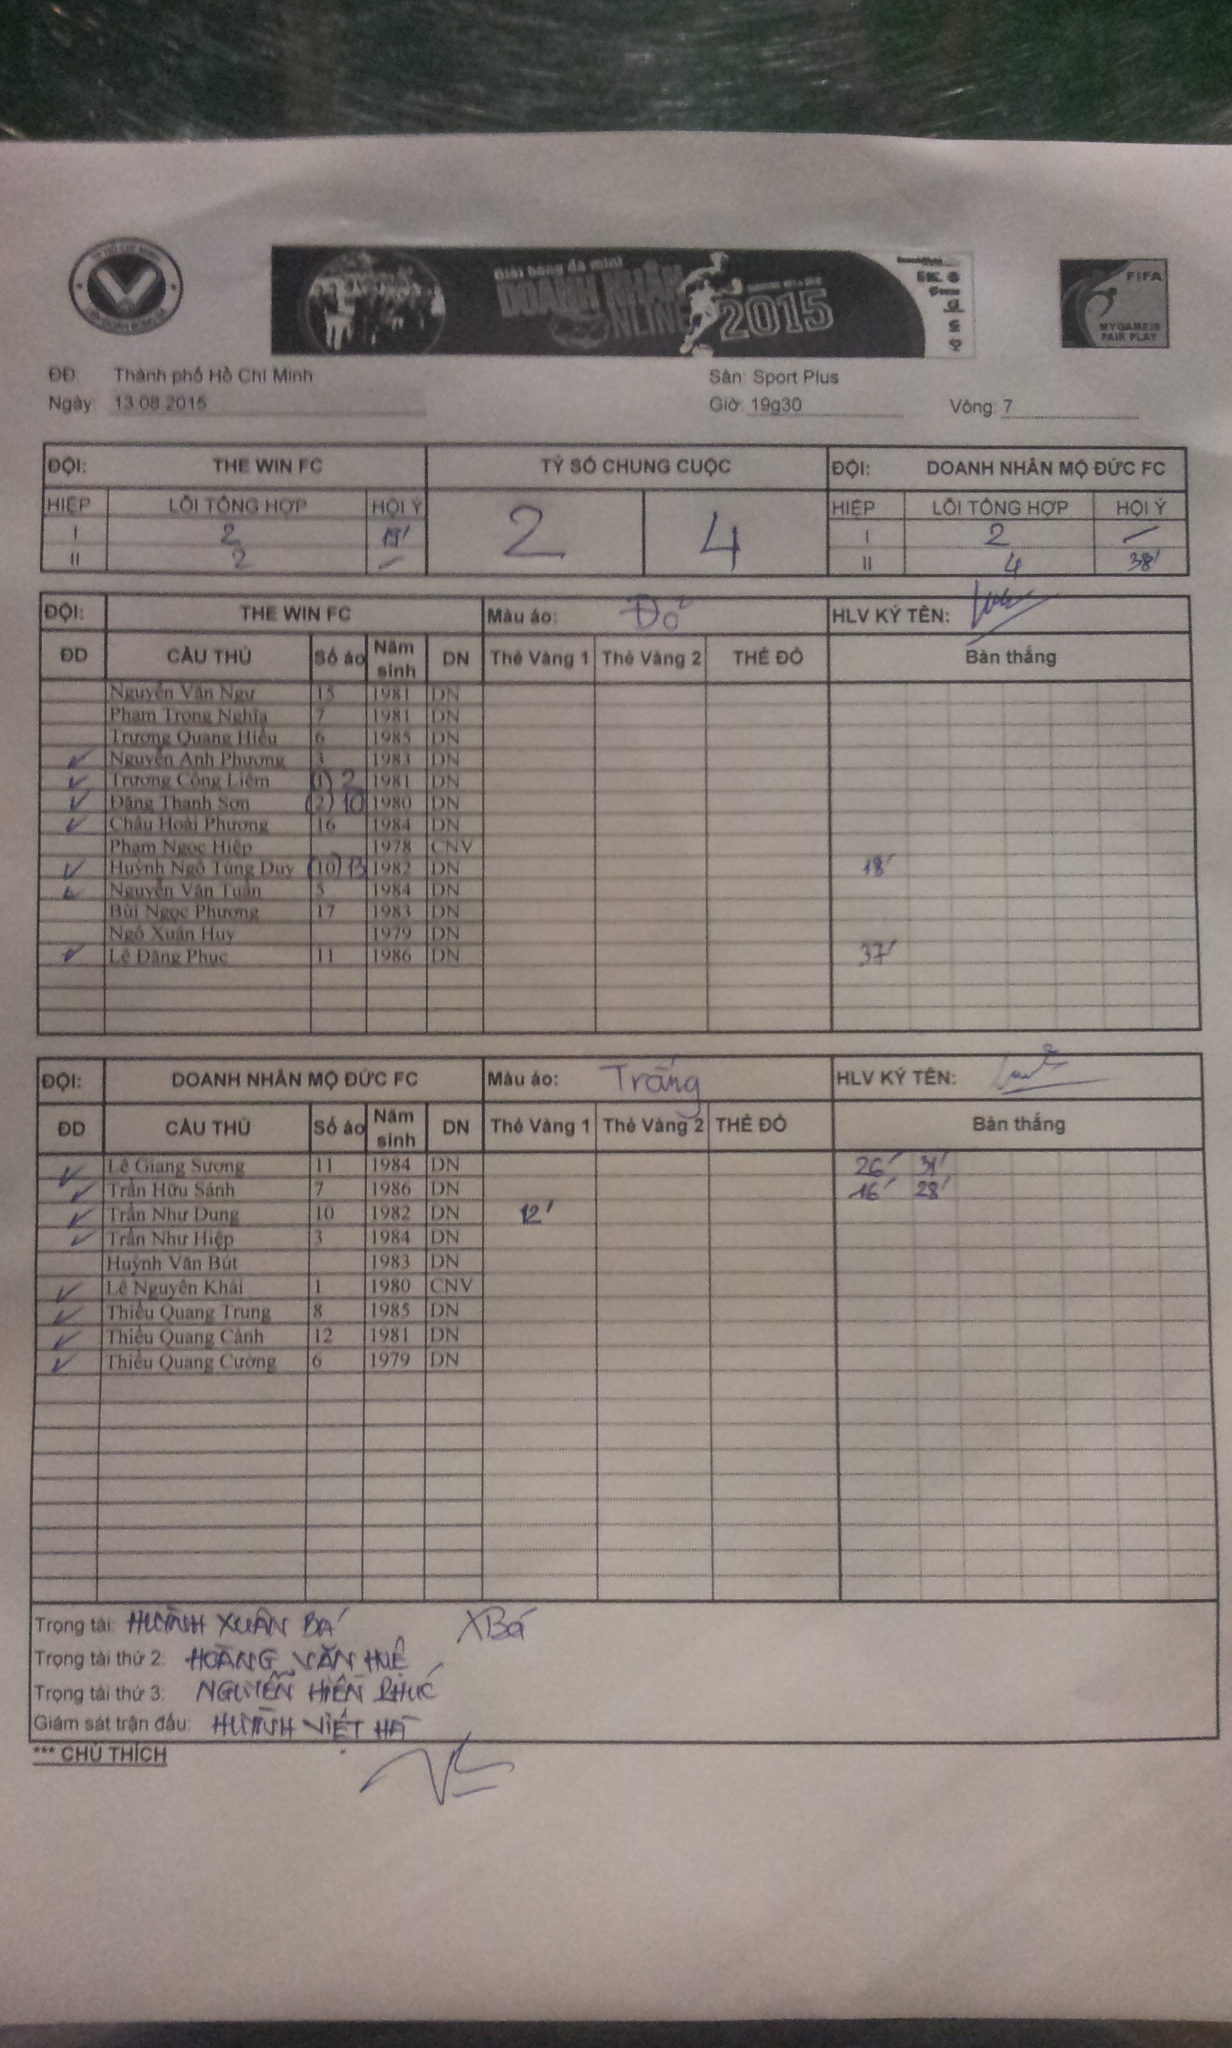 Giải bóng đá mini
DOANH NHÂN
NLINE 2015
FIFA
MY GAME IS
FAIR PLAY
ĐĐ: Thành phố Hồ Chí Minh Sân: Sport Plus
Ngày: 13.08.2015 Giờ: 19g30 Vòng: 7
ĐỘI: THE WIN FC TỶ SỐ CHUNG CUỘC ĐỘI: DOANH NHÂN MỘ ĐỨC FC
HIỆP LỖI TỔNG HỢP HỘI Ý 2 4 HIỆP LỖI TỔNG HỢP HỘI Ý
I 2 19' I 2 -
II 2 - II 4 38'
ĐỘI: THE WIN FC Màu áo: Đỏ HLV KÝ TÊN:
ĐD CẦU THỦ Số áo Năm sinh DN Thẻ Vàng 1 Thẻ Vàng 2 THẺ ĐỎ Bàn thắng
Nguyễn Văn Ngư 15 1981 DN
Phạm Trọng Nghĩa 7 1981 DN
Trương Quang Hiếu 6 1985 DN
✓ Nguyễn Anh Phương 3 1983 DN
✓ Trương Công Liêm (1) 2 1981 DN
✓ Đặng Thanh Sơn (2) 10 1980 DN
✓ Châu Hoài Phương 16 1984 DN
Phạm Ngọc Hiệp 1978 CNV
✓ Huỳnh Ngô Tùng Duy (10) 13 1982 DN 18'
✓ Nguyễn Văn Tuấn 5 1984 DN
Bùi Ngọc Phương 17 1983 DN
Ngô Xuân Huy 1979 DN
✓ Lê Đăng Phục 11 1986 DN 37'
ĐỘI: DOANH NHÂN MỘ ĐỨC FC Màu áo: Trắng HLV KÝ TÊN:
ĐD CẦU THỦ Số áo Năm sinh DN Thẻ Vàng 1 Thẻ Vàng 2 THẺ ĐỎ Bàn thắng
✓ Lê Giang Sương 11 1984 DN 26' 31'
✓ Trần Hữu Sánh 7 1986 DN 16' 28'
✓ Trần Như Dung 10 1982 DN 12'
✓ Trần Như Hiệp 3 1984 DN
Huỳnh Văn Bút 1983 DN
✓ Lê Nguyên Khải 1 1980 CNV
✓ Thiều Quang Trung 8 1985 DN
✓ Thiều Quang Cảnh 12 1981 DN
✓ Thiều Quang Cường 6 1979 DN
Trọng tài: HUỲNH XUÂN BÁ XBá
Trọng tài thứ 2: HOÀNG VĂN HUỆ
Trọng tài thứ 3: NGUYỄN HIỀN PHÚC
Giám sát trận đấu: HUỲNH VIỆT HÀ
*** CHÚ THÍCH